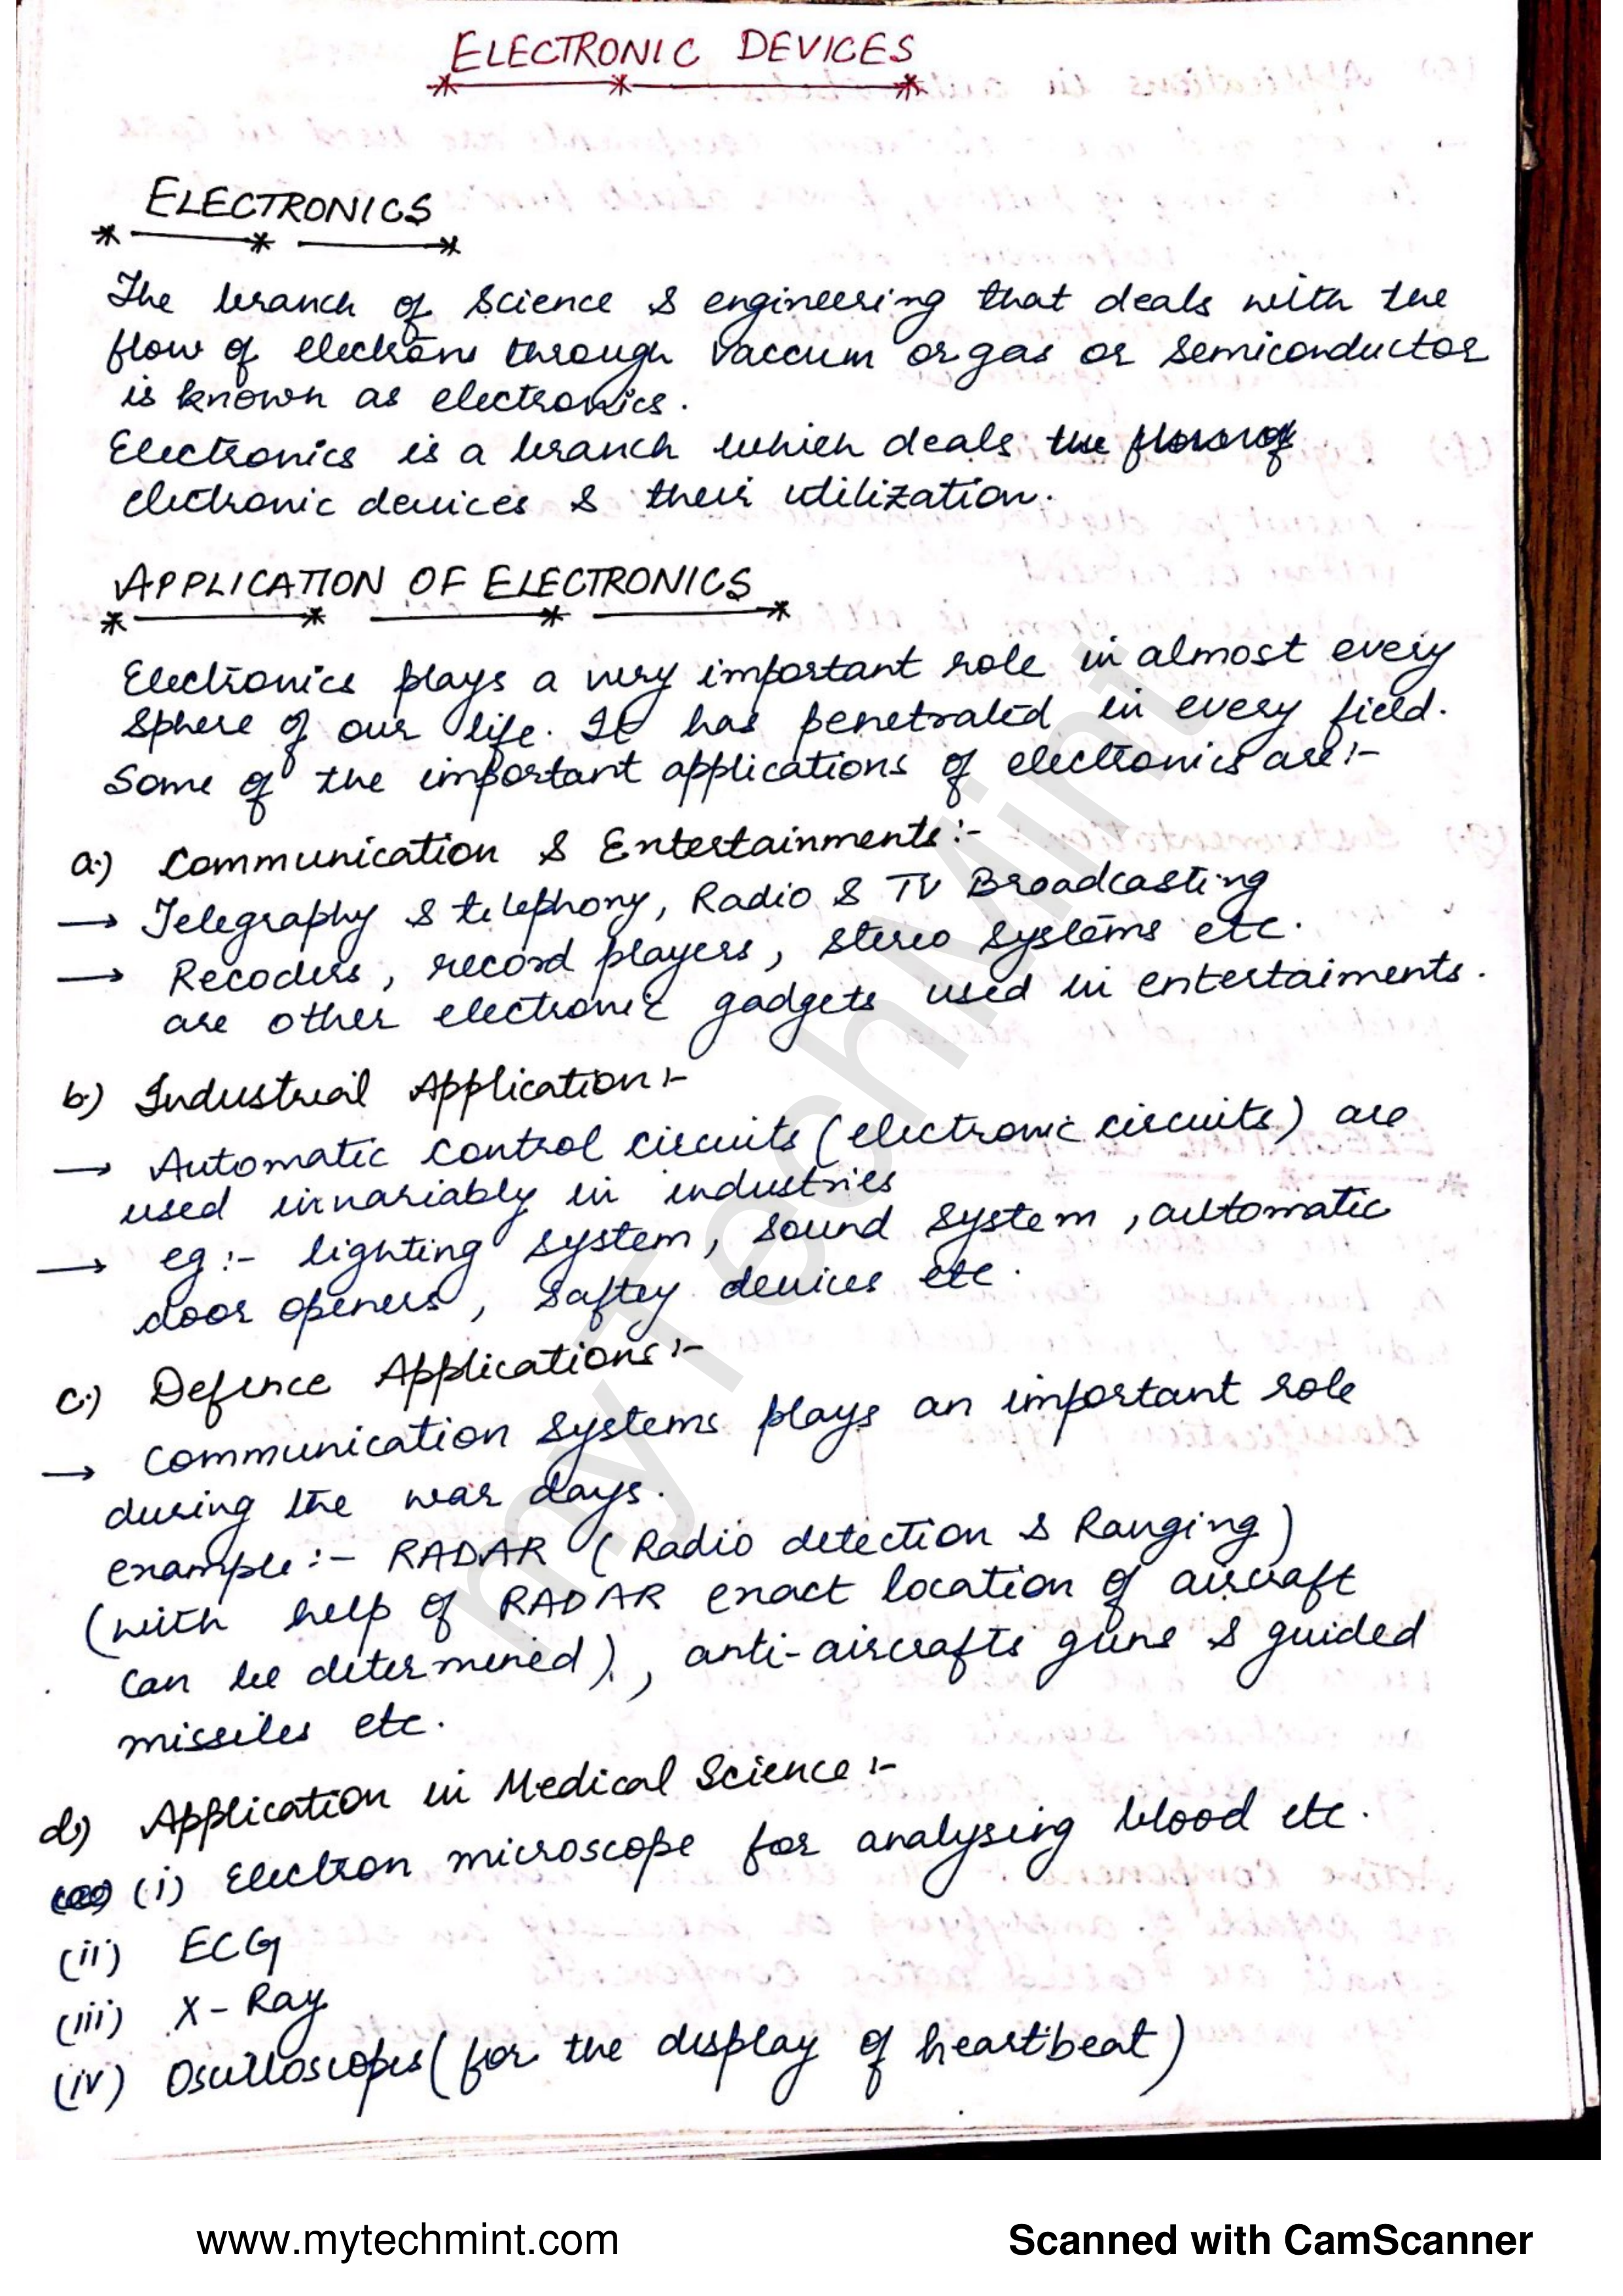 ELECTRONIC DEVICES
ELECTRONICS
The branch of Science & engineering that deals with the
flow of electrons through vaccum or gas or semiconductor
is known as electronics.
Electronics is a branch which deals the flow of
electronic devices & their utilization.
APPLICATION OF ELECTRONICS
Electronics plays a very important role in almost every
sphere of our life. It has penetrated in every field.
Some of the important applications of electronics are:-
a.) Communication & Entertainments:-
→ Telegraphy & telephony, Radio & TV Broadcasting
→ Recoders, record players, stereo systems etc.
are other electronic gadgets used in entertaiments.
b.) Industrial Application:-
→ Automatic control circuits (electronic circuits) are
used invariably in industries
→ eg:- lighting system, sound system, automatic
door openers, saftey devices etc.
c.) Defence Applications:-
→ Communication systems plays an important role
during the war days.
example:- RADAR (Radio detection & Ranging)
(with help of RADAR exact location of aircraft
can be determined), anti-aircrafts guns & guided
missiles etc.
d.) Application in Medical Science:-
(i) Electron microscope for analysing blood etc.
(ii) ECG
(iii) X-Ray
(iv) Oscilloscopes (for the display of heartbeat)
myTechMint
www.mytechmint.com
Scanned with CamScanner